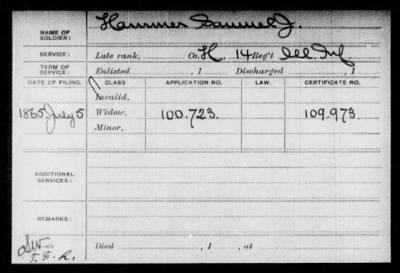 NAME OF SOLDIER: Hammer Samuel J.
SERVICE: Late rank, Co. H, 14 Reg't Ill Inf
TERM OF SERVICE: Enlisted , 1 Discharged , 1
DATE OF FILING. CLASS. APPLICATION NO. LAW. CERTIFICATE NO.
Invalid,
1865 July 5 Widow, 100.723. 109.973.
Minor,
ADDITIONAL SERVICES:
REMARKS:
Died , 1 , at